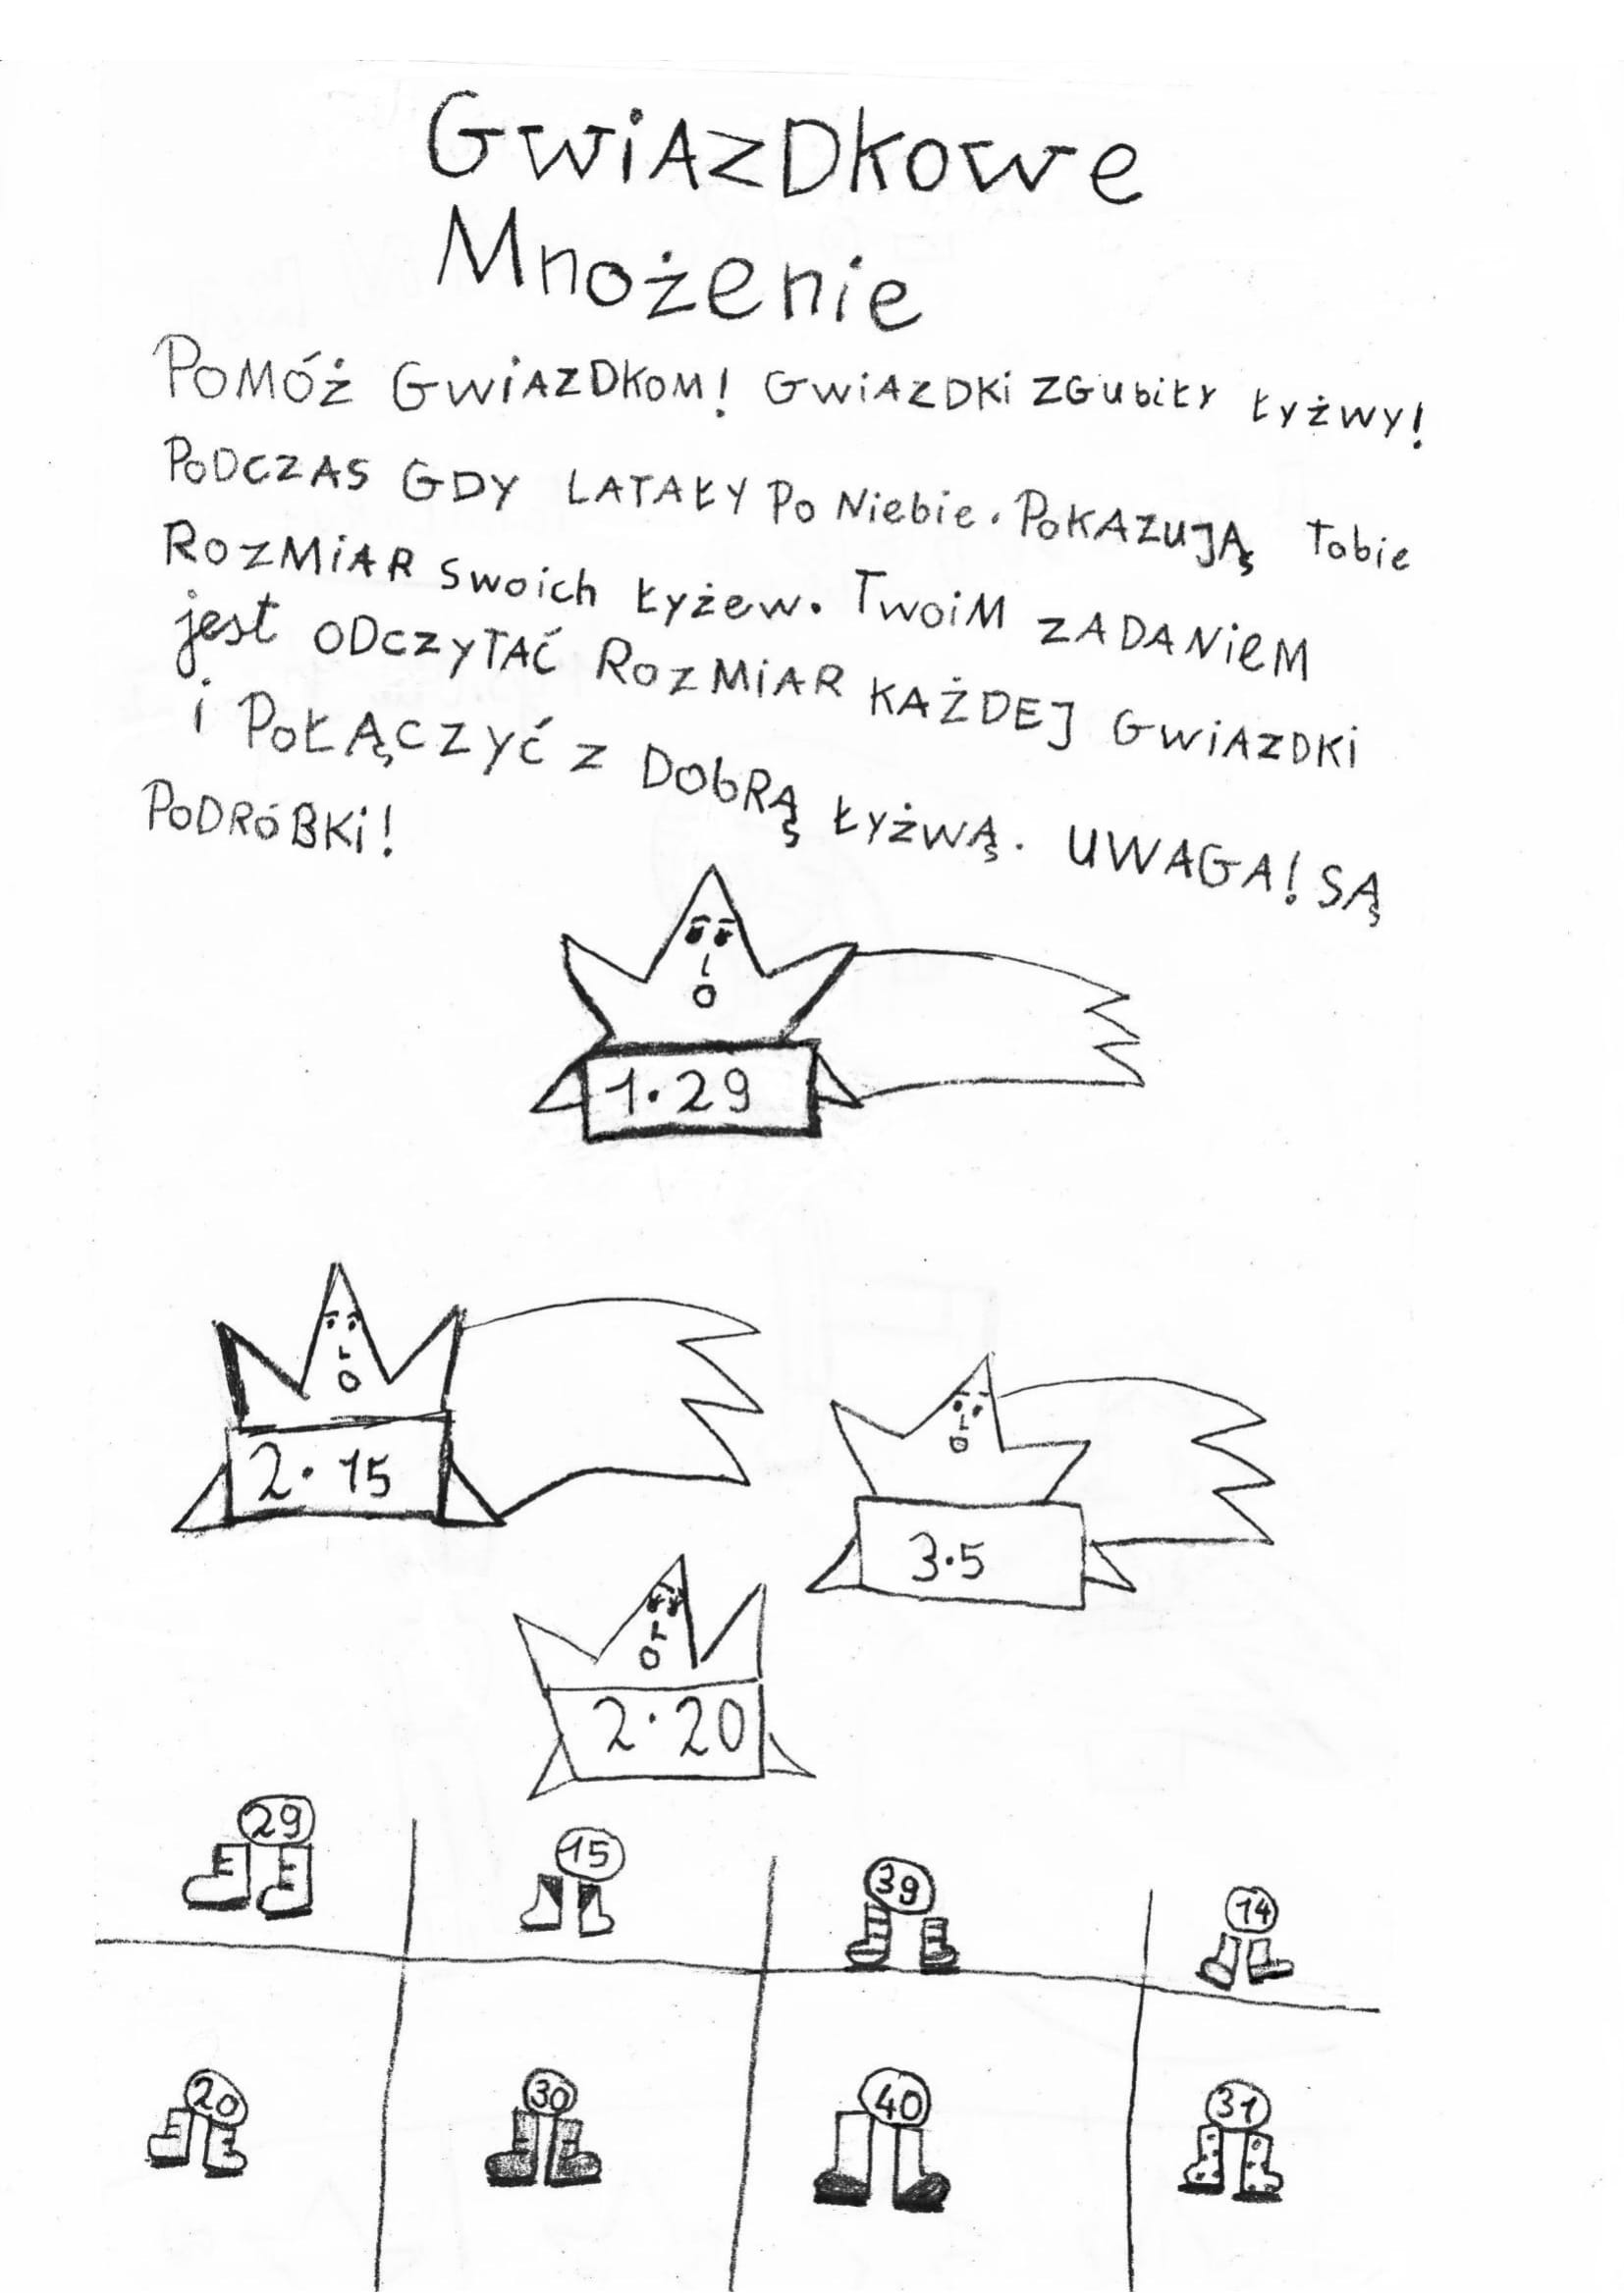 GWiAZDKOWe
MnożeniE
POMÓŻ GWiAZDKOM! GWiAZDKi ZGUbiŁY ŁYŻWY!
PODCZAS GDY LATAŁY Po Niebie. POKAZUJĄ Tobie
ROZMiAR Swoich ŁYżew. TwoiM ZADANieM
jest ODCZYTAĆ ROZMiAR KAŻDEJ GWiAZDKi
i POŁĄCZYĆ Z DObRĄ ŁYŻWĄ. UWAGA! SĄ
PODRÓBKi!
1·29
2·15
3·5
2·20
29 15 39 14
20 30 40 31